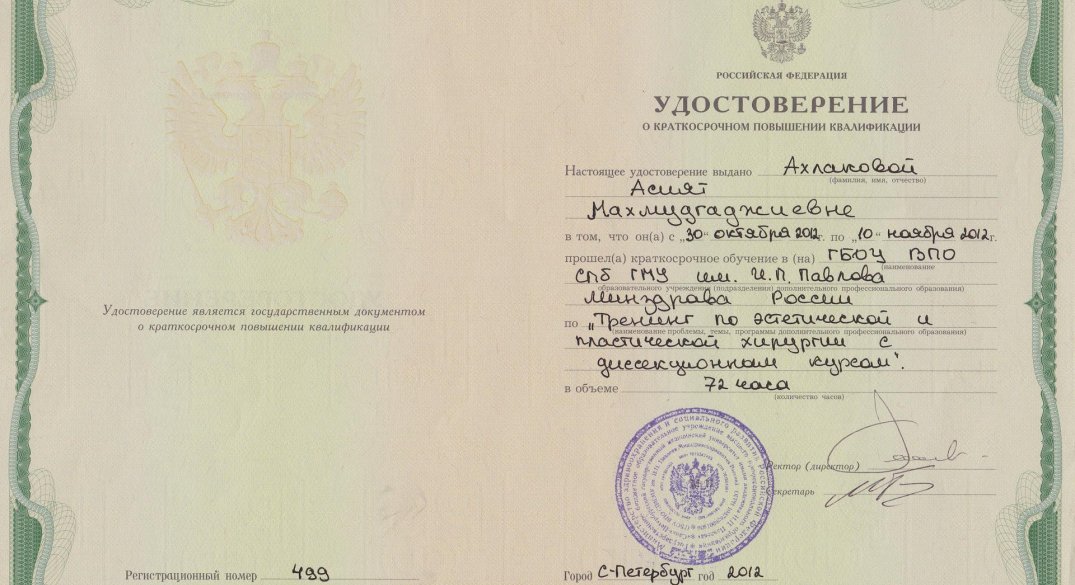 Удостоверение является государственным документом
о краткосрочном повышении квалификации
Регистрационный номер 499
РОССИЙСКАЯ ФЕДЕРАЦИЯ
УДОСТОВЕРЕНИЕ
О КРАТКОСРОЧНОМ ПОВЫШЕНИИ КВАЛИФИКАЦИИ
Настоящее удостоверение выдано Ахлаковой
(фамилия, имя, отчество)
Асият
Махмудгаджиевне
в том, что он(а) с „30“ октября 2012 г. по „10“ ноября 2012 г.
прошел(а) краткосрочное обучение в (на) ГБОУ ВПО
(наименование
СПб ГМУ им. И.П. Павлова
образовательного учреждения (подразделения) дополнительного профессионального образования)
Минздрава России
по „Тренинг по эстетической и
(наименование проблемы, темы, программы дополнительного профессионального образования)
пластической хирургии с
диссекционным курсом“.
в объеме 72 часа
(количество часов)
Ректор (директор)
Секретарь
Город С-Петербург год 2012